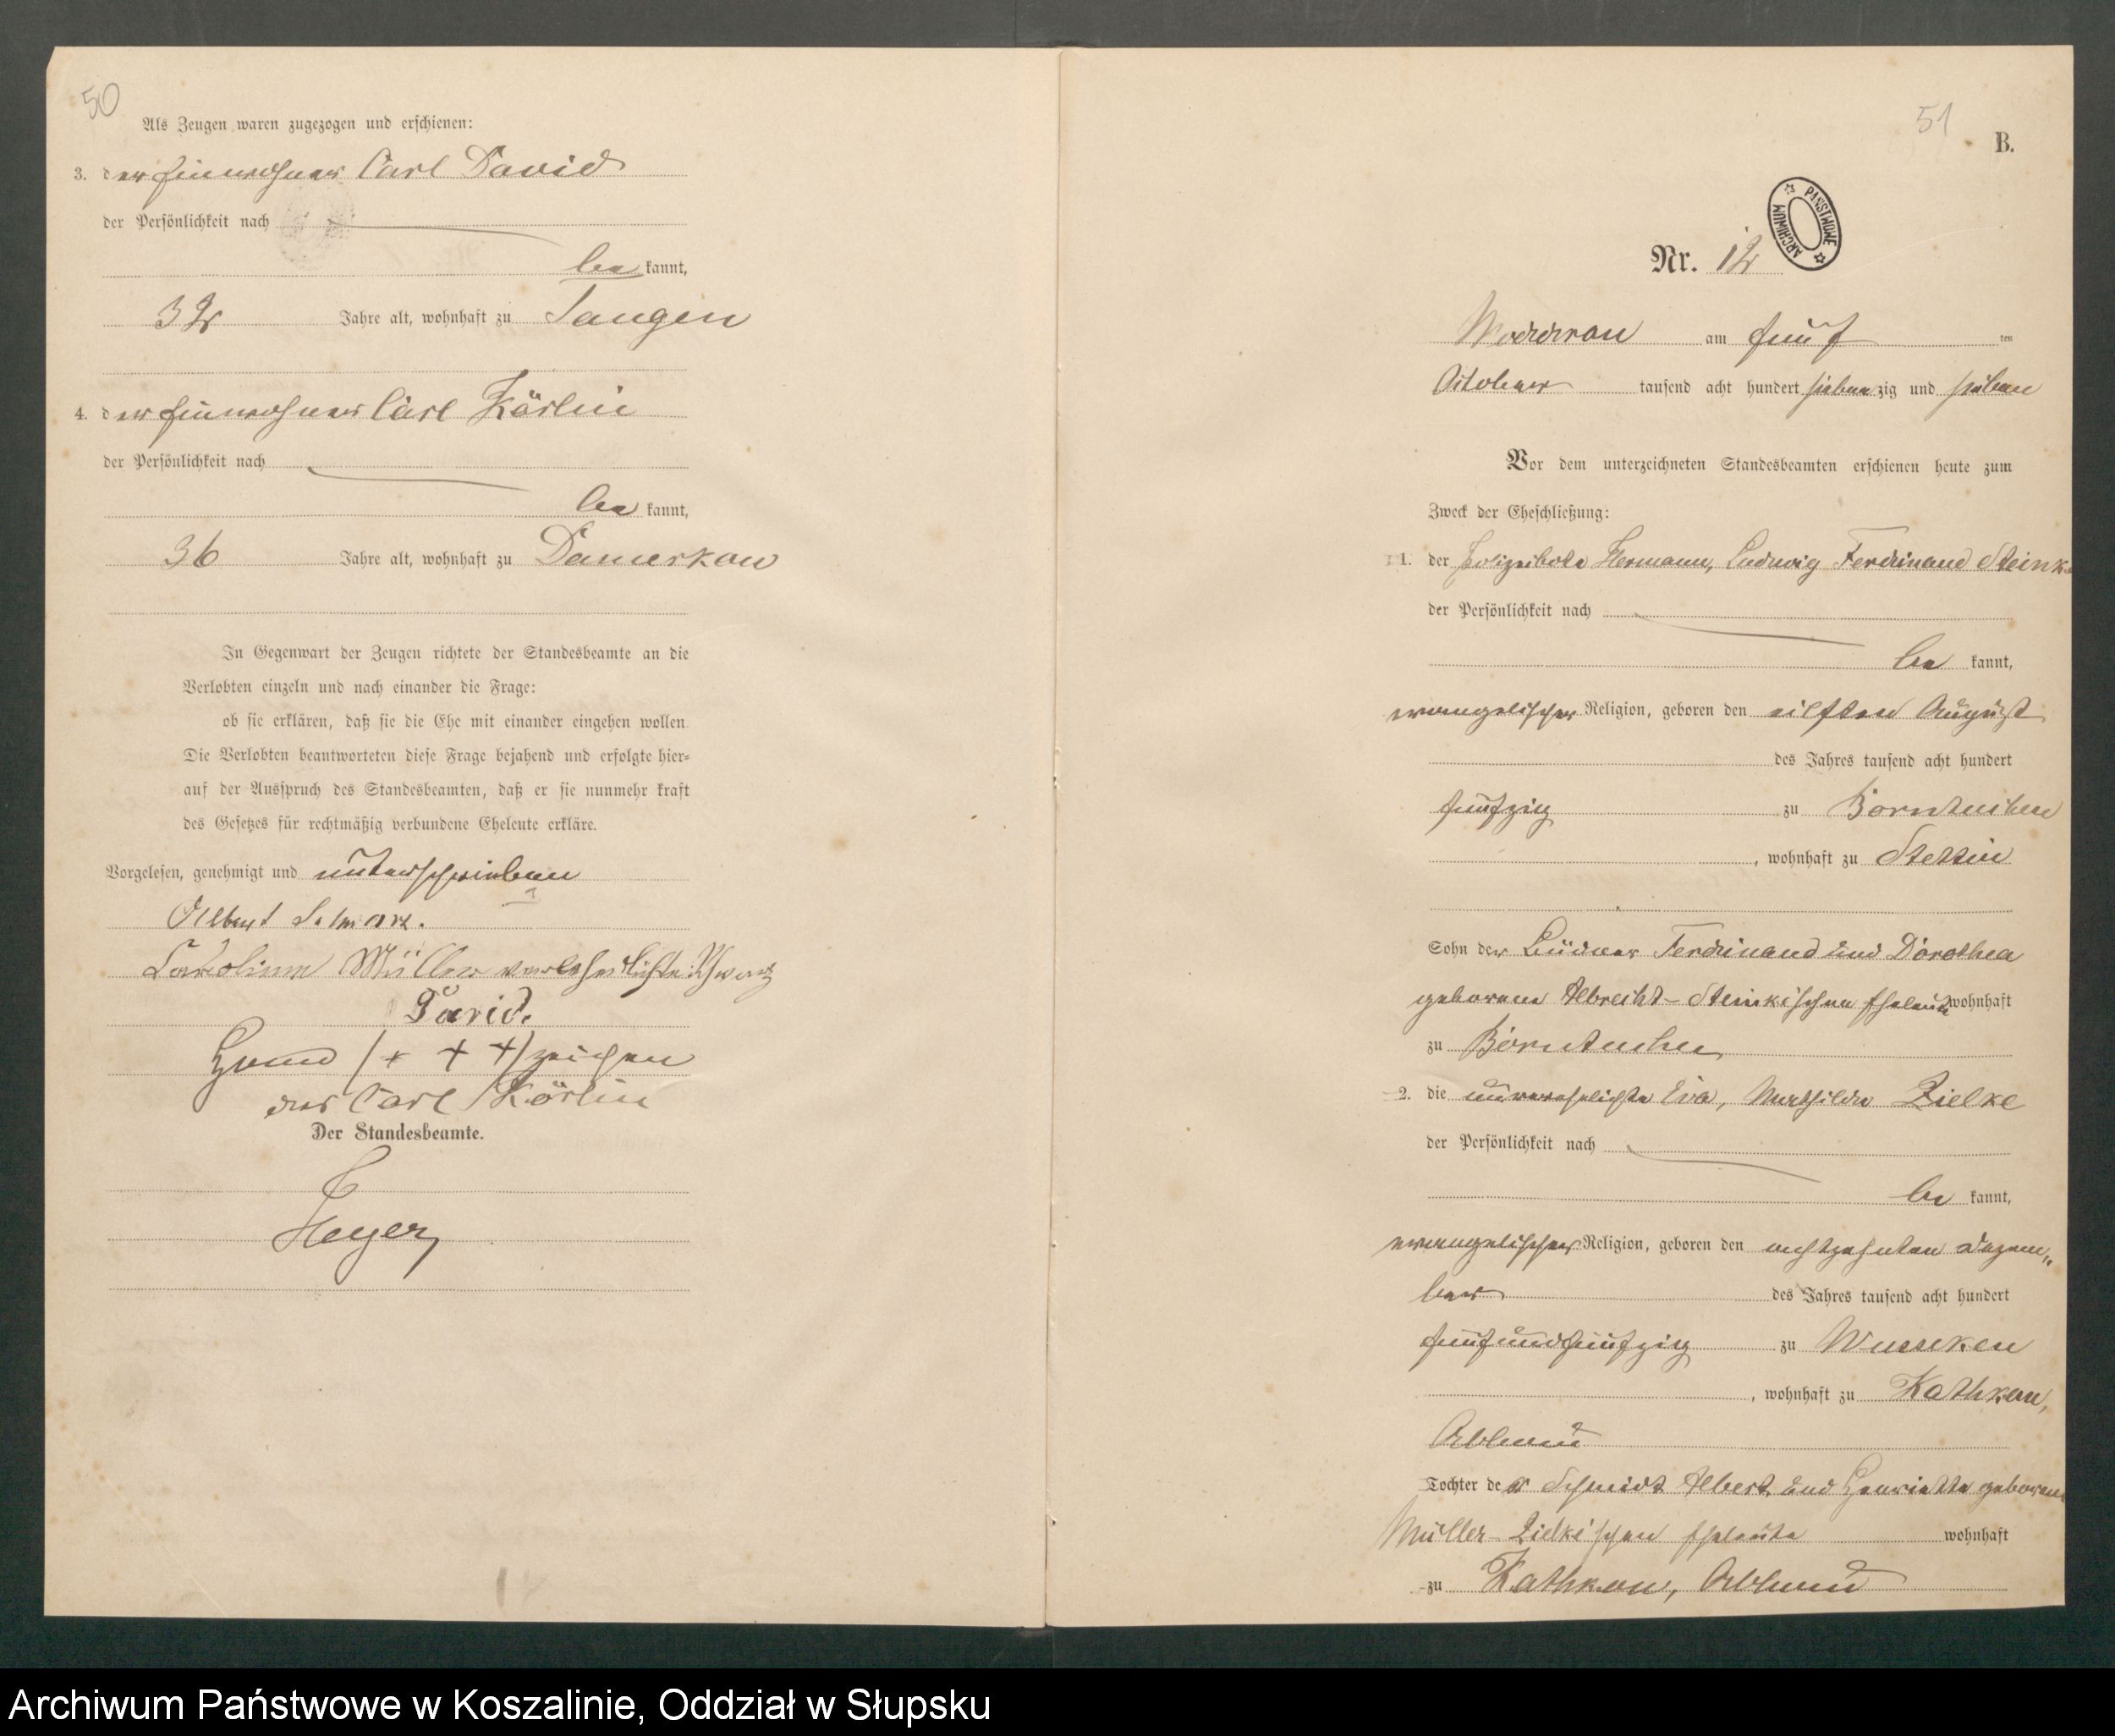 50
Als Zeugen waren zugezogen und erschienen:
3. der Einwohner Carl David
der Persönlichkeit nach
be kannt,
32 Jahre alt, wohnhaft zu Jaugen
4. der Einwohner Carl Körlin
der Persönlichkeit nach
be kannt,
36 Jahre alt, wohnhaft zu Damerkow
In Gegenwart der Zeugen richtete der Standesbeamte an die
Verlobten einzeln und nach einander die Frage:
ob sie erklären, daß sie die Ehe mit einander eingehen wollen.
Die Verlobten beantworteten diese Frage bejahend und erfolgte hier=
auf der Ausspruch des Standesbeamten, daß er sie nunmehr kraft
des Gesetzes für rechtmäßig verbundene Eheleute erkläre.
Vorgelesen, genehmigt und unterschrieben
Albert
Karoline Müller verehelichte
David.
Hand (+ + +) zeichen
des Carl Körlin
Der Standesbeamte.
Heyer
51
B.
ARCHIWUM PAŃSTWOWE
Nr. 12
Moddrow am fünf ten
October tausend acht hundert sieben zig und sieben
Vor dem unterzeichneten Standesbeamten erschienen heute zum
Zweck der Eheschließung:
1. der Polizeibote Hermann, Ludwig Ferdinand Steinke
der Persönlichkeit nach
be kannt,
evangelischer Religion, geboren den eilften August
des Jahres tausend acht hundert
fünfzig zu Borntuchen
, wohnhaft zu Stettin
Sohn der Büdner Ferdinand und Dorothea
geborene Albrecht-Steinkeschen Eheleute wohnhaft
zu Borntuchen
2. die unverehelichte Eva, Mathilde Zielke
der Persönlichkeit nach
be kannt,
evangelischer Religion, geboren den achtzehnten Dezem„
ber des Jahres tausend acht hundert
fünfundfünfzig zu Wusseken
, wohnhaft zu Kathkow,
Abbau
Tochter der Schmidt Albert und Henriette geborene
Müller-Zielke'schen Eheleute wohnhaft
zu Kathkow, Abbau
Archiwum Państwowe w Koszalinie, Oddział w Słupsku